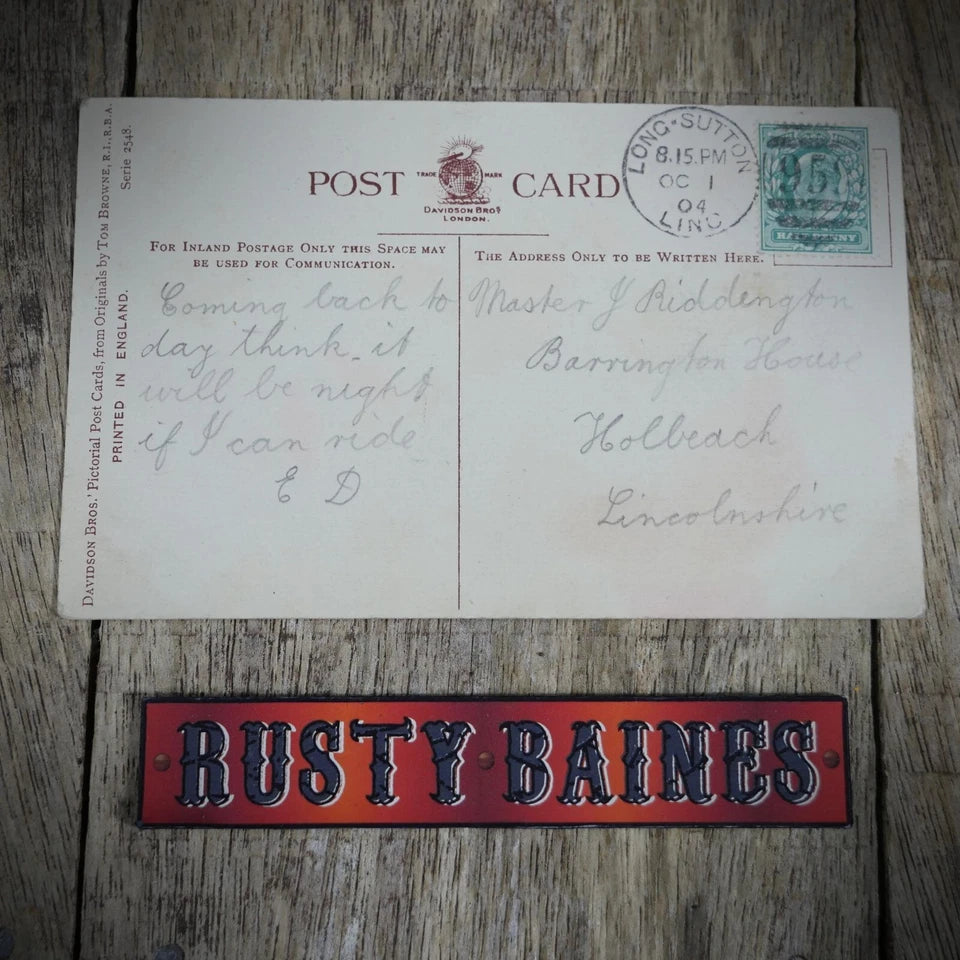 POST CARD
TRADE MARK
DAVIDSON BROS
LONDON.
LONG-SUTTON
8.15.PM
OC 1
04
LINC
951
HALFPENNY
FOR INLAND POSTAGE ONLY THIS SPACE MAY
BE USED FOR COMMUNICATION.
THE ADDRESS ONLY TO BE WRITTEN HERE.
Coming back to
day think it
will be night
if I can ride
E D
Master J Riddington
Barrington House
Holbeach
Lincolnshire
DAVIDSON BROS.' Pictorial Post Cards, from Originals by TOM BROWNE, R.I., R.B.A.
Serie 2548.
PRINTED IN ENGLAND.
RUSTY BAINES